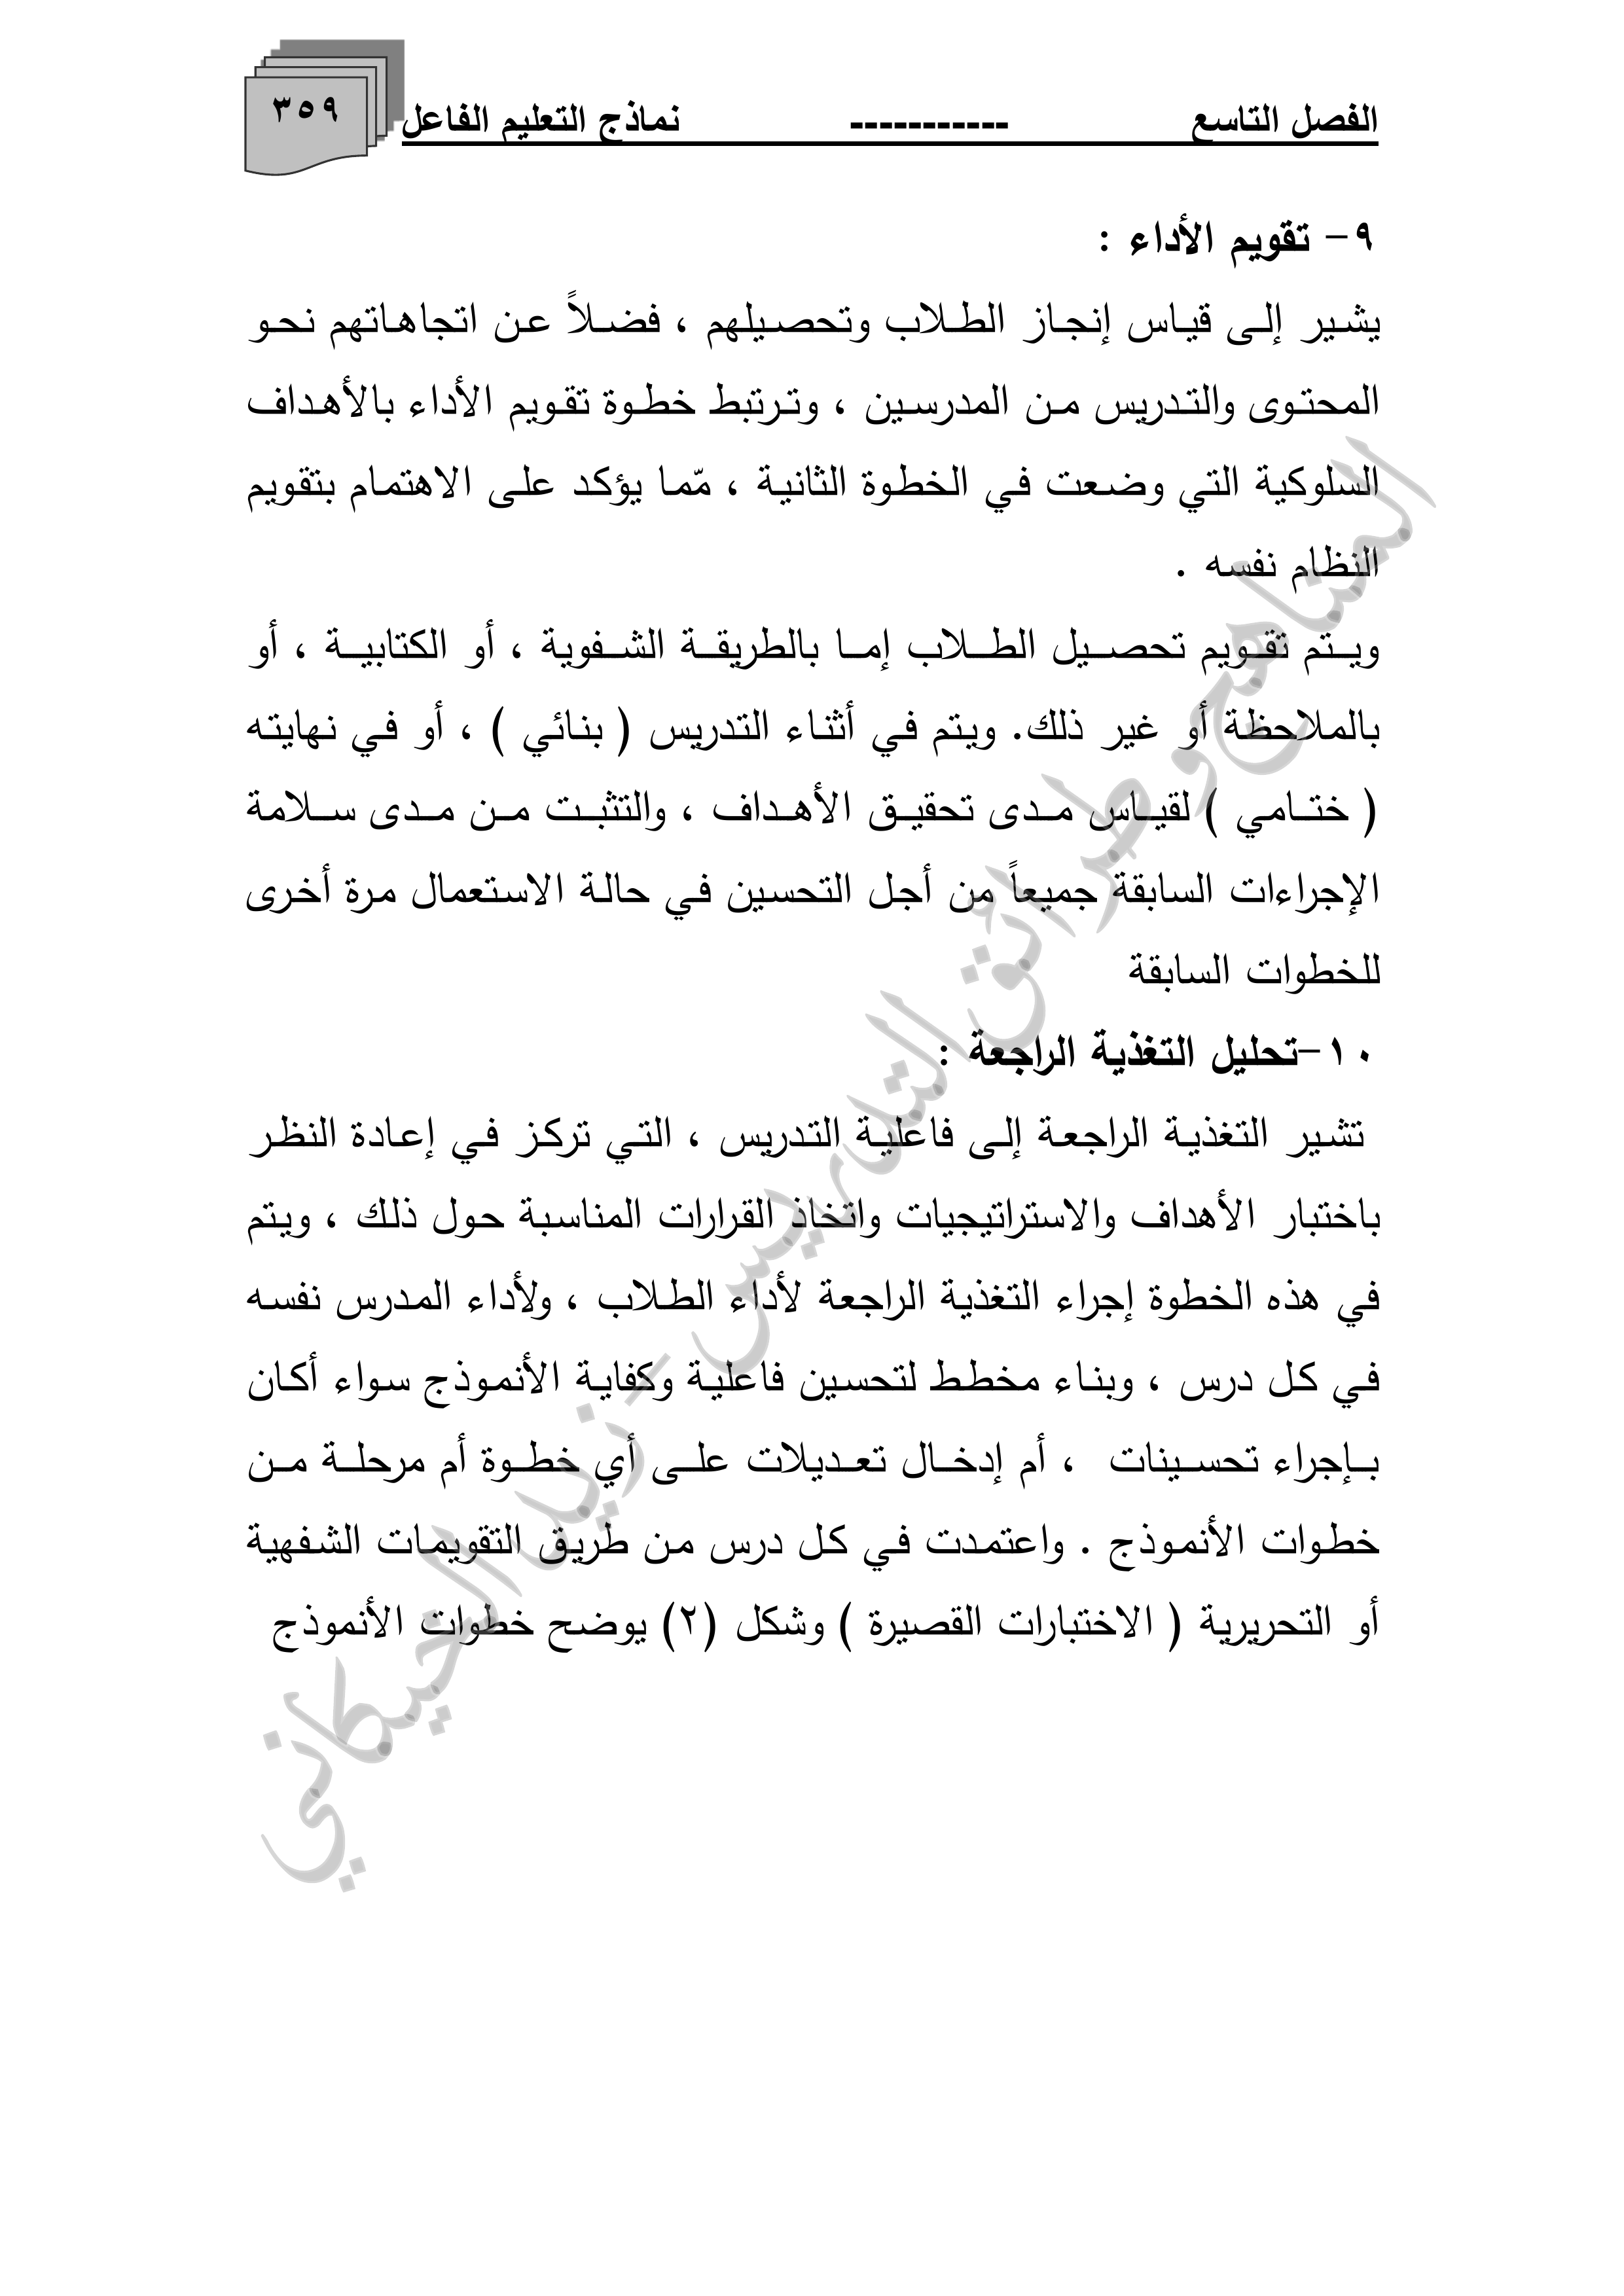 الفصل التاسع ----------- نماذج التعليم الفاعل
٣٥٩
٩- تقويم الأداء :
يشير إلى قياس إنجاز الطلاب وتحصيلهم ، فضلاً عن اتجاهاتهم نحو
المحتوى والتدريس من المدرسين ، وترتبط خطوة تقويم الأداء بالأهداف
السلوكية التي وضعت في الخطوة الثانية ، مّما يؤكد على الاهتمام بتقويم
النظام نفسه .
ويتم تقويم تحصيل الطلاب إما بالطريقة الشفوية ، أو الكتابية ، أو
بالملاحظة أو غير ذلك. ويتم في أثناء التدريس ( بنائي ) ، أو في نهايته
( ختامي ) لقياس مدى تحقيق الأهداف ، والتثبت من مدى سلامة
الإجراءات السابقة جميعاً من أجل التحسين في حالة الاستعمال مرة أخرى
للخطوات السابقة
١٠-تحليل التغذية الراجعة :
تشير التغذية الراجعة إلى فاعلية التدريس ، التي تركز في إعادة النظر
باختبار الأهداف والاستراتيجيات واتخاذ القرارات المناسبة حول ذلك ، ويتم
في هذه الخطوة إجراء التغذية الراجعة لأداء الطلاب ، ولأداء المدرس نفسه
في كل درس ، وبناء مخطط لتحسين فاعلية وكفاية الأنموذج سواء أكان
بإجراء تحسينات ، أم إدخال تعديلات على أي خطوة أم مرحلة من
خطوات الأنموذج . واعتمدت في كل درس من طريق التقويمات الشفهية
أو التحريرية ( الاختبارات القصيرة ) وشكل (٢) يوضح خطوات الأنموذج
المناهج وطرائق التدريس - زيد الخيكاني